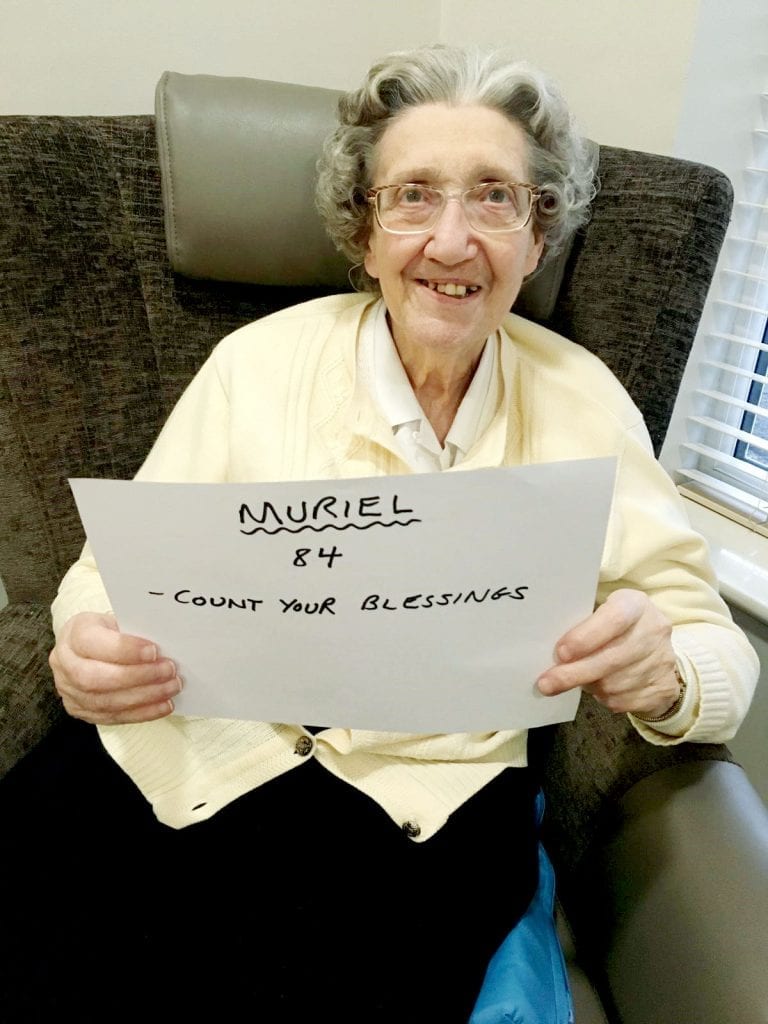 MURIEL
84
- COUNT YOUR BLESSINGS